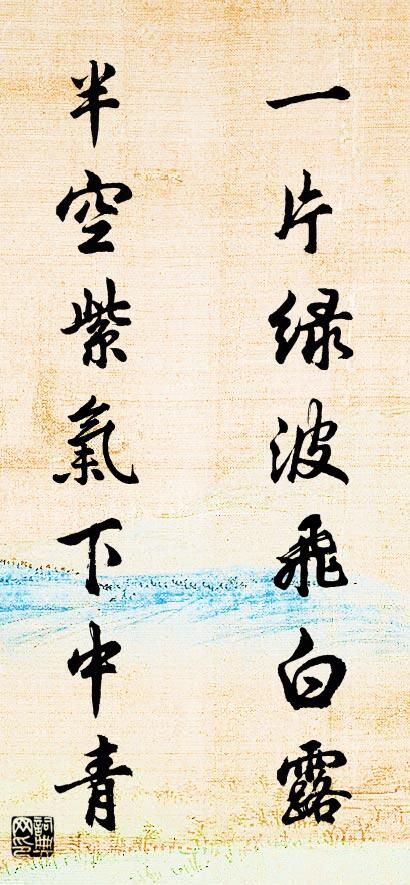 一片緑波飛白露
半空紫氣下中青
詞典網印